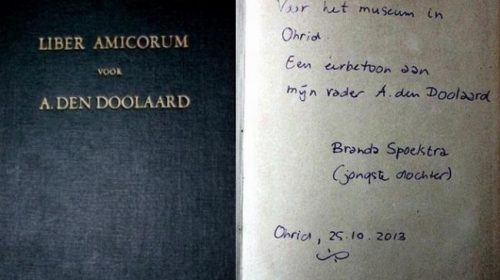 LIBER AMICORUM
VOOR
A. DEN DOOLAARD
Voor het museum in
Ohrid.
Een eerbetoon aan
mijn vader A. den Doolaard
Branda Spoelstra
(jongste dochter)
Ohrid, 25.10.2013